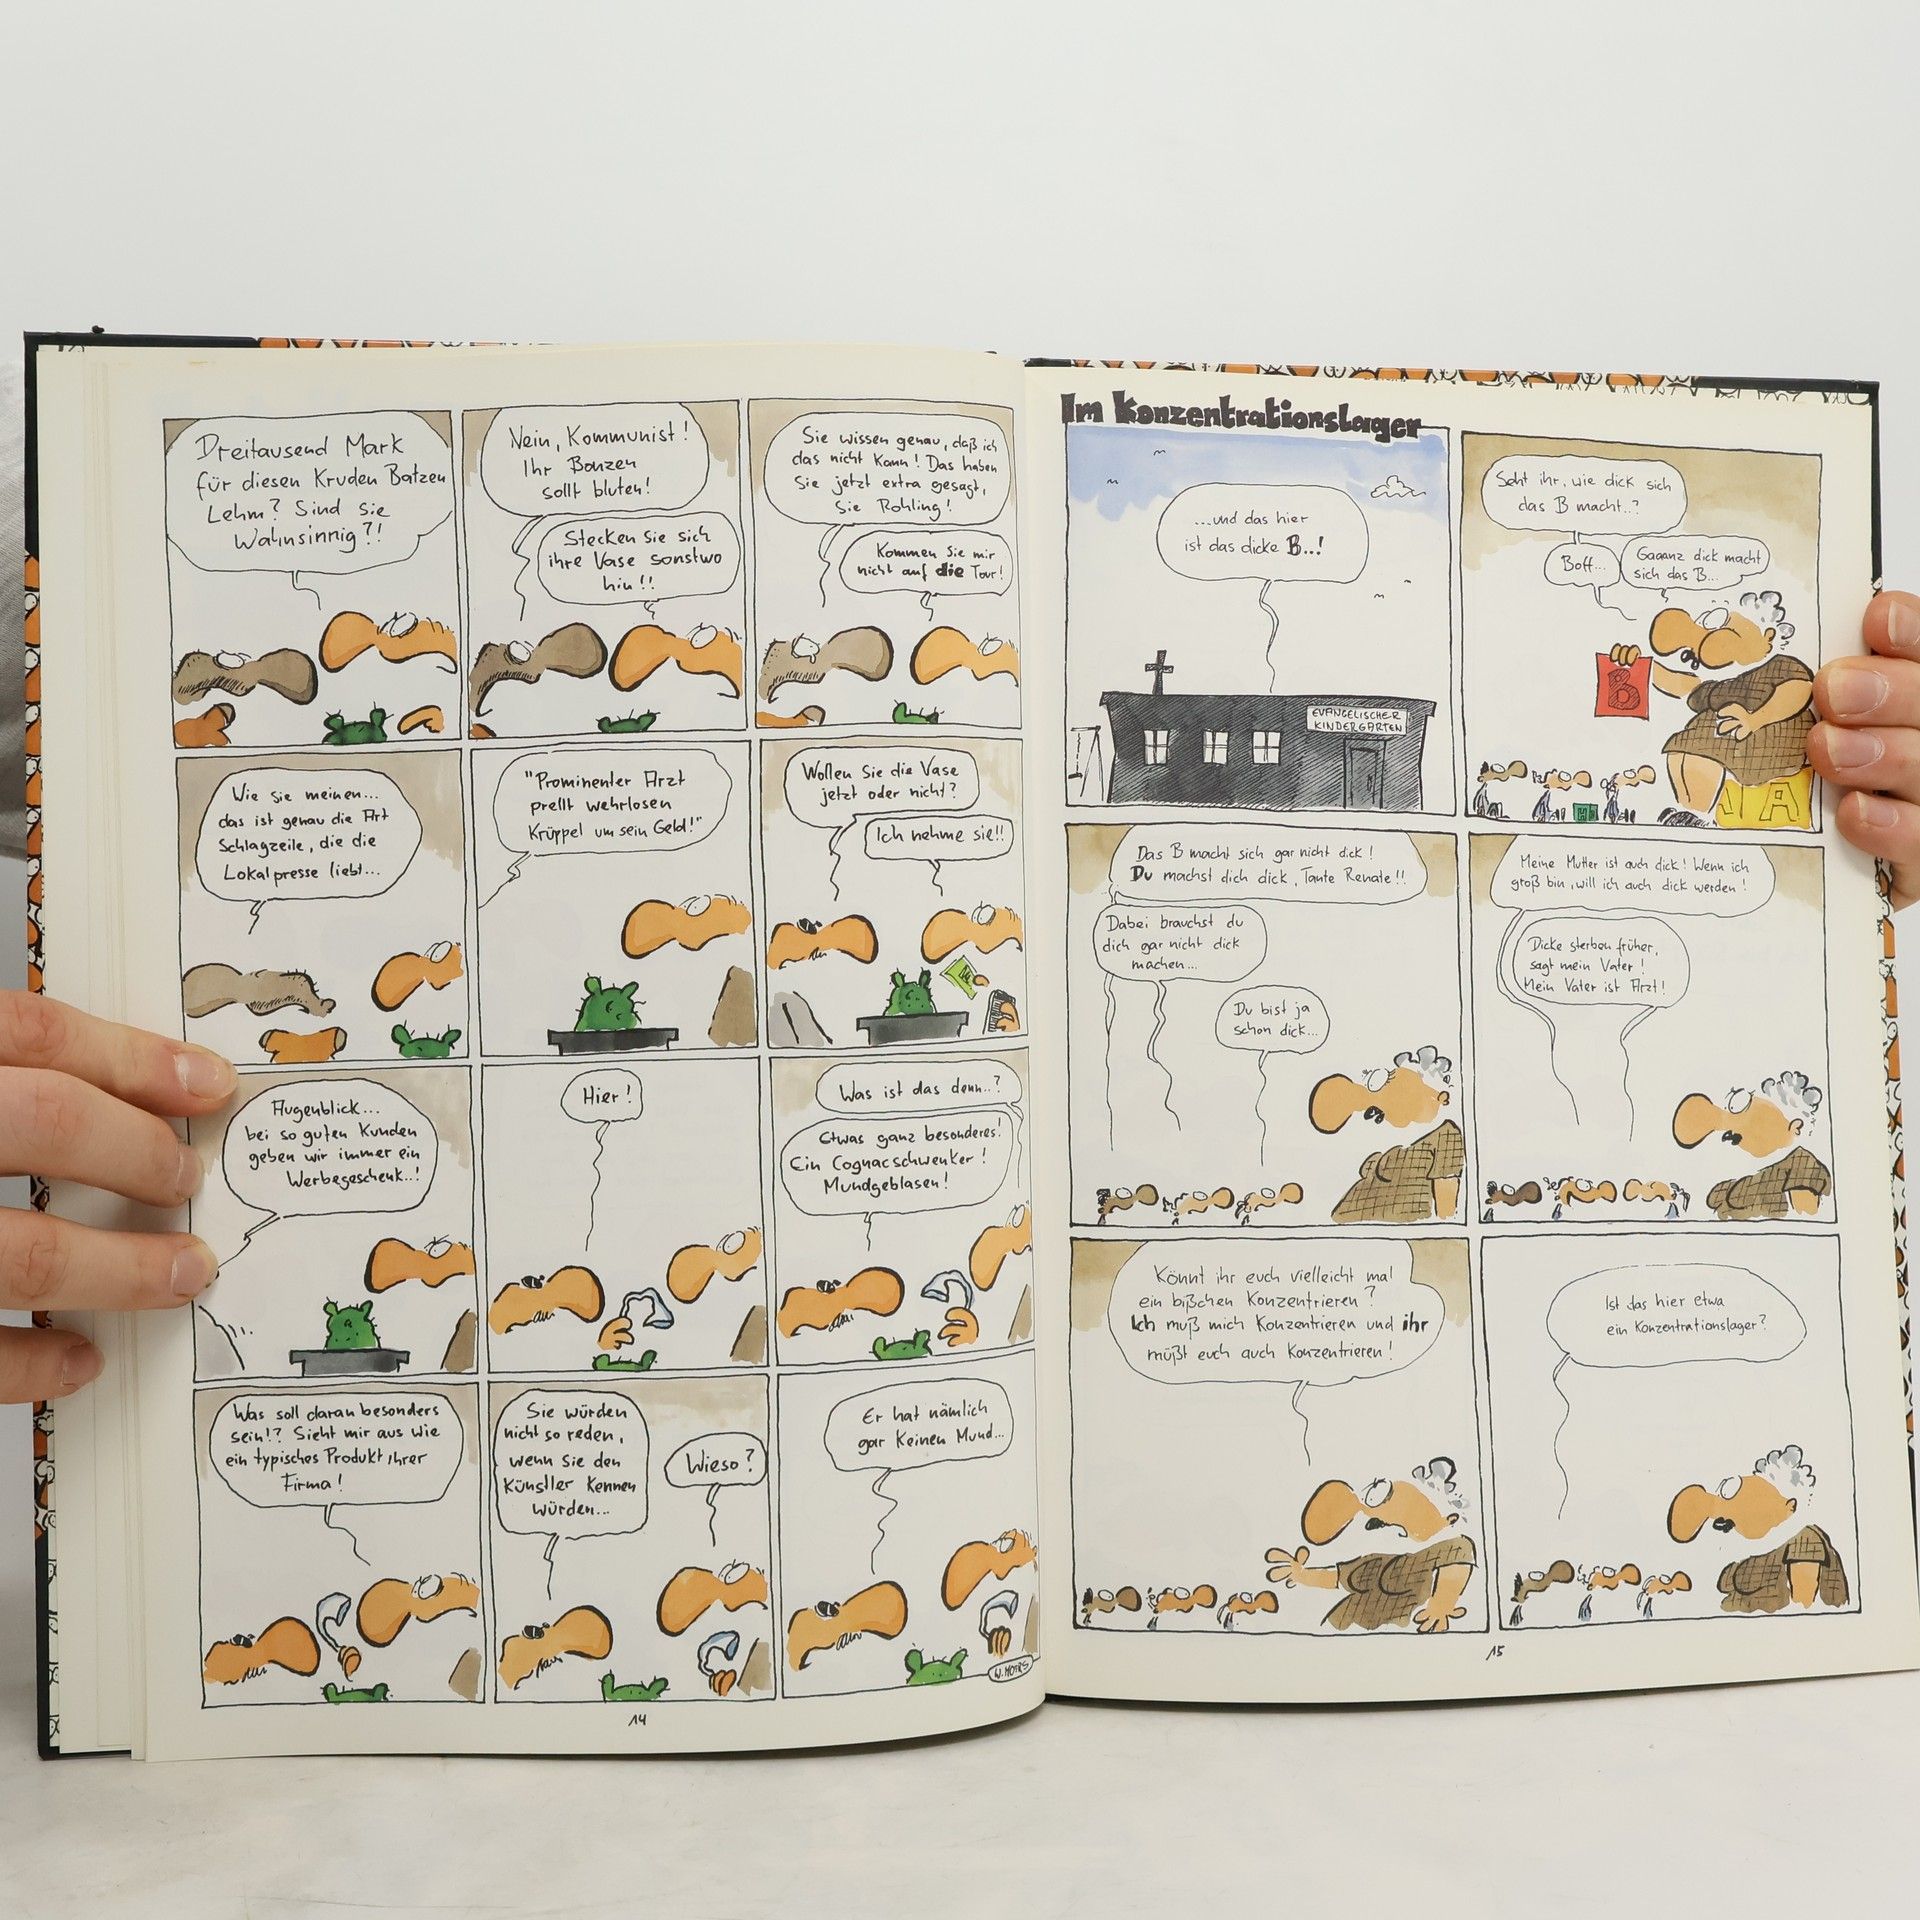 Dreitausend Mark
für diesen Kruden Batzen
Lehm? Sind Sie
Wahnsinnig?!
Nein, Kommunist!
Ihr Bonzen
sollt bluten!
Stecken Sie sich
ihre Vase sonstwo
hin!!
Sie wissen genau, daß ich
das nicht Kann! Das haben
Sie jetzt extra gesagt,
Sie Rohling!
Kommen Sie mir
nicht auf die Tour!
Wie sie meinen...
das ist genau die Art
Schlagzeile, die die
Lokalpresse liebt...
"Prominenter Arzt
prellt wehrlosen
Krüppel um sein Geld!"
Wollen Sie die Vase
jetzt oder nicht?
Ich nehme sie!!
Augenblick...
bei so guten Kunden
geben wir immer ein
Werbegeschenk..!
Hier!
Was ist das denn..?
Etwas ganz besonderes!
Ein Cognacschwenker!
Mundgeblasen!
Was soll daran besonders
sein!? Sieht mir aus wie
ein typisches Produkt ihrer
Firma!
Sie würden
nicht so reden,
wenn Sie den
Künstler Kennen
würden...
Wieso?
Er hat nämlich
gar Keinen Mund...
W. MOERS
14
Im Konzentrationslager
...und das hier
ist das dicke B..!
EVANGELISCHER
KINDERGARTEN
Seht ihr, wie dick sich
das B macht..?
Boff...
Gaaanz dick macht
sich das B...
B
A
Das B macht sich gar nicht dick!
Du machst dich dick, Tante Renate!!
Dabei brauchst du
dich gar nicht dick
machen...
Du bist ja
schon dick...
Meine Mutter ist auch dick! Wenn ich
groß bin, will ich auch dick werden!
Dicke sterben früher,
sagt mein Vater!
Mein Vater ist Arzt!
Könnt ihr euch vielleicht mal
ein bißchen Konzentrieren?
Ich muß mich Konzentrieren und ihr
müßt euch auch Konzentrieren!
Ist das hier etwa
ein Konzentrationslager?
15